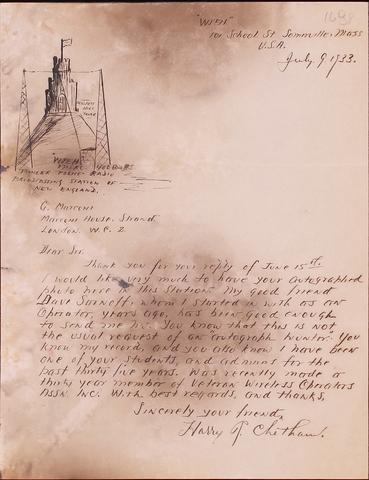 "WPEH"
101 School St. Somerville, Mass
U.S.A.
July 9 1933.
Prospect
Hill
Tower
Pioneer Police Radio
Broadcasting Station of
New England.
G. Marconi
Marconi House, Strand,
London. W.C. 2
Dear Sir.
Thank you for your reply of June 15th.
I would like very much to have your autographed
photo here in this Station. My good friend
Dave Sarnoff, whom I started in with as an
Operator, years ago, has been good enough
to send me his. You know that this is not
the usual request of an "autograph hunter. You
know my record, and you also know I have been
one of your students, and admirers for the
past thirty five years. Was recently made a
thirty year member of Veteran Wireless Operators
Assn. Inc. With best regards, and thanks,
Sincerly your friend,
Harry R. Chetham.